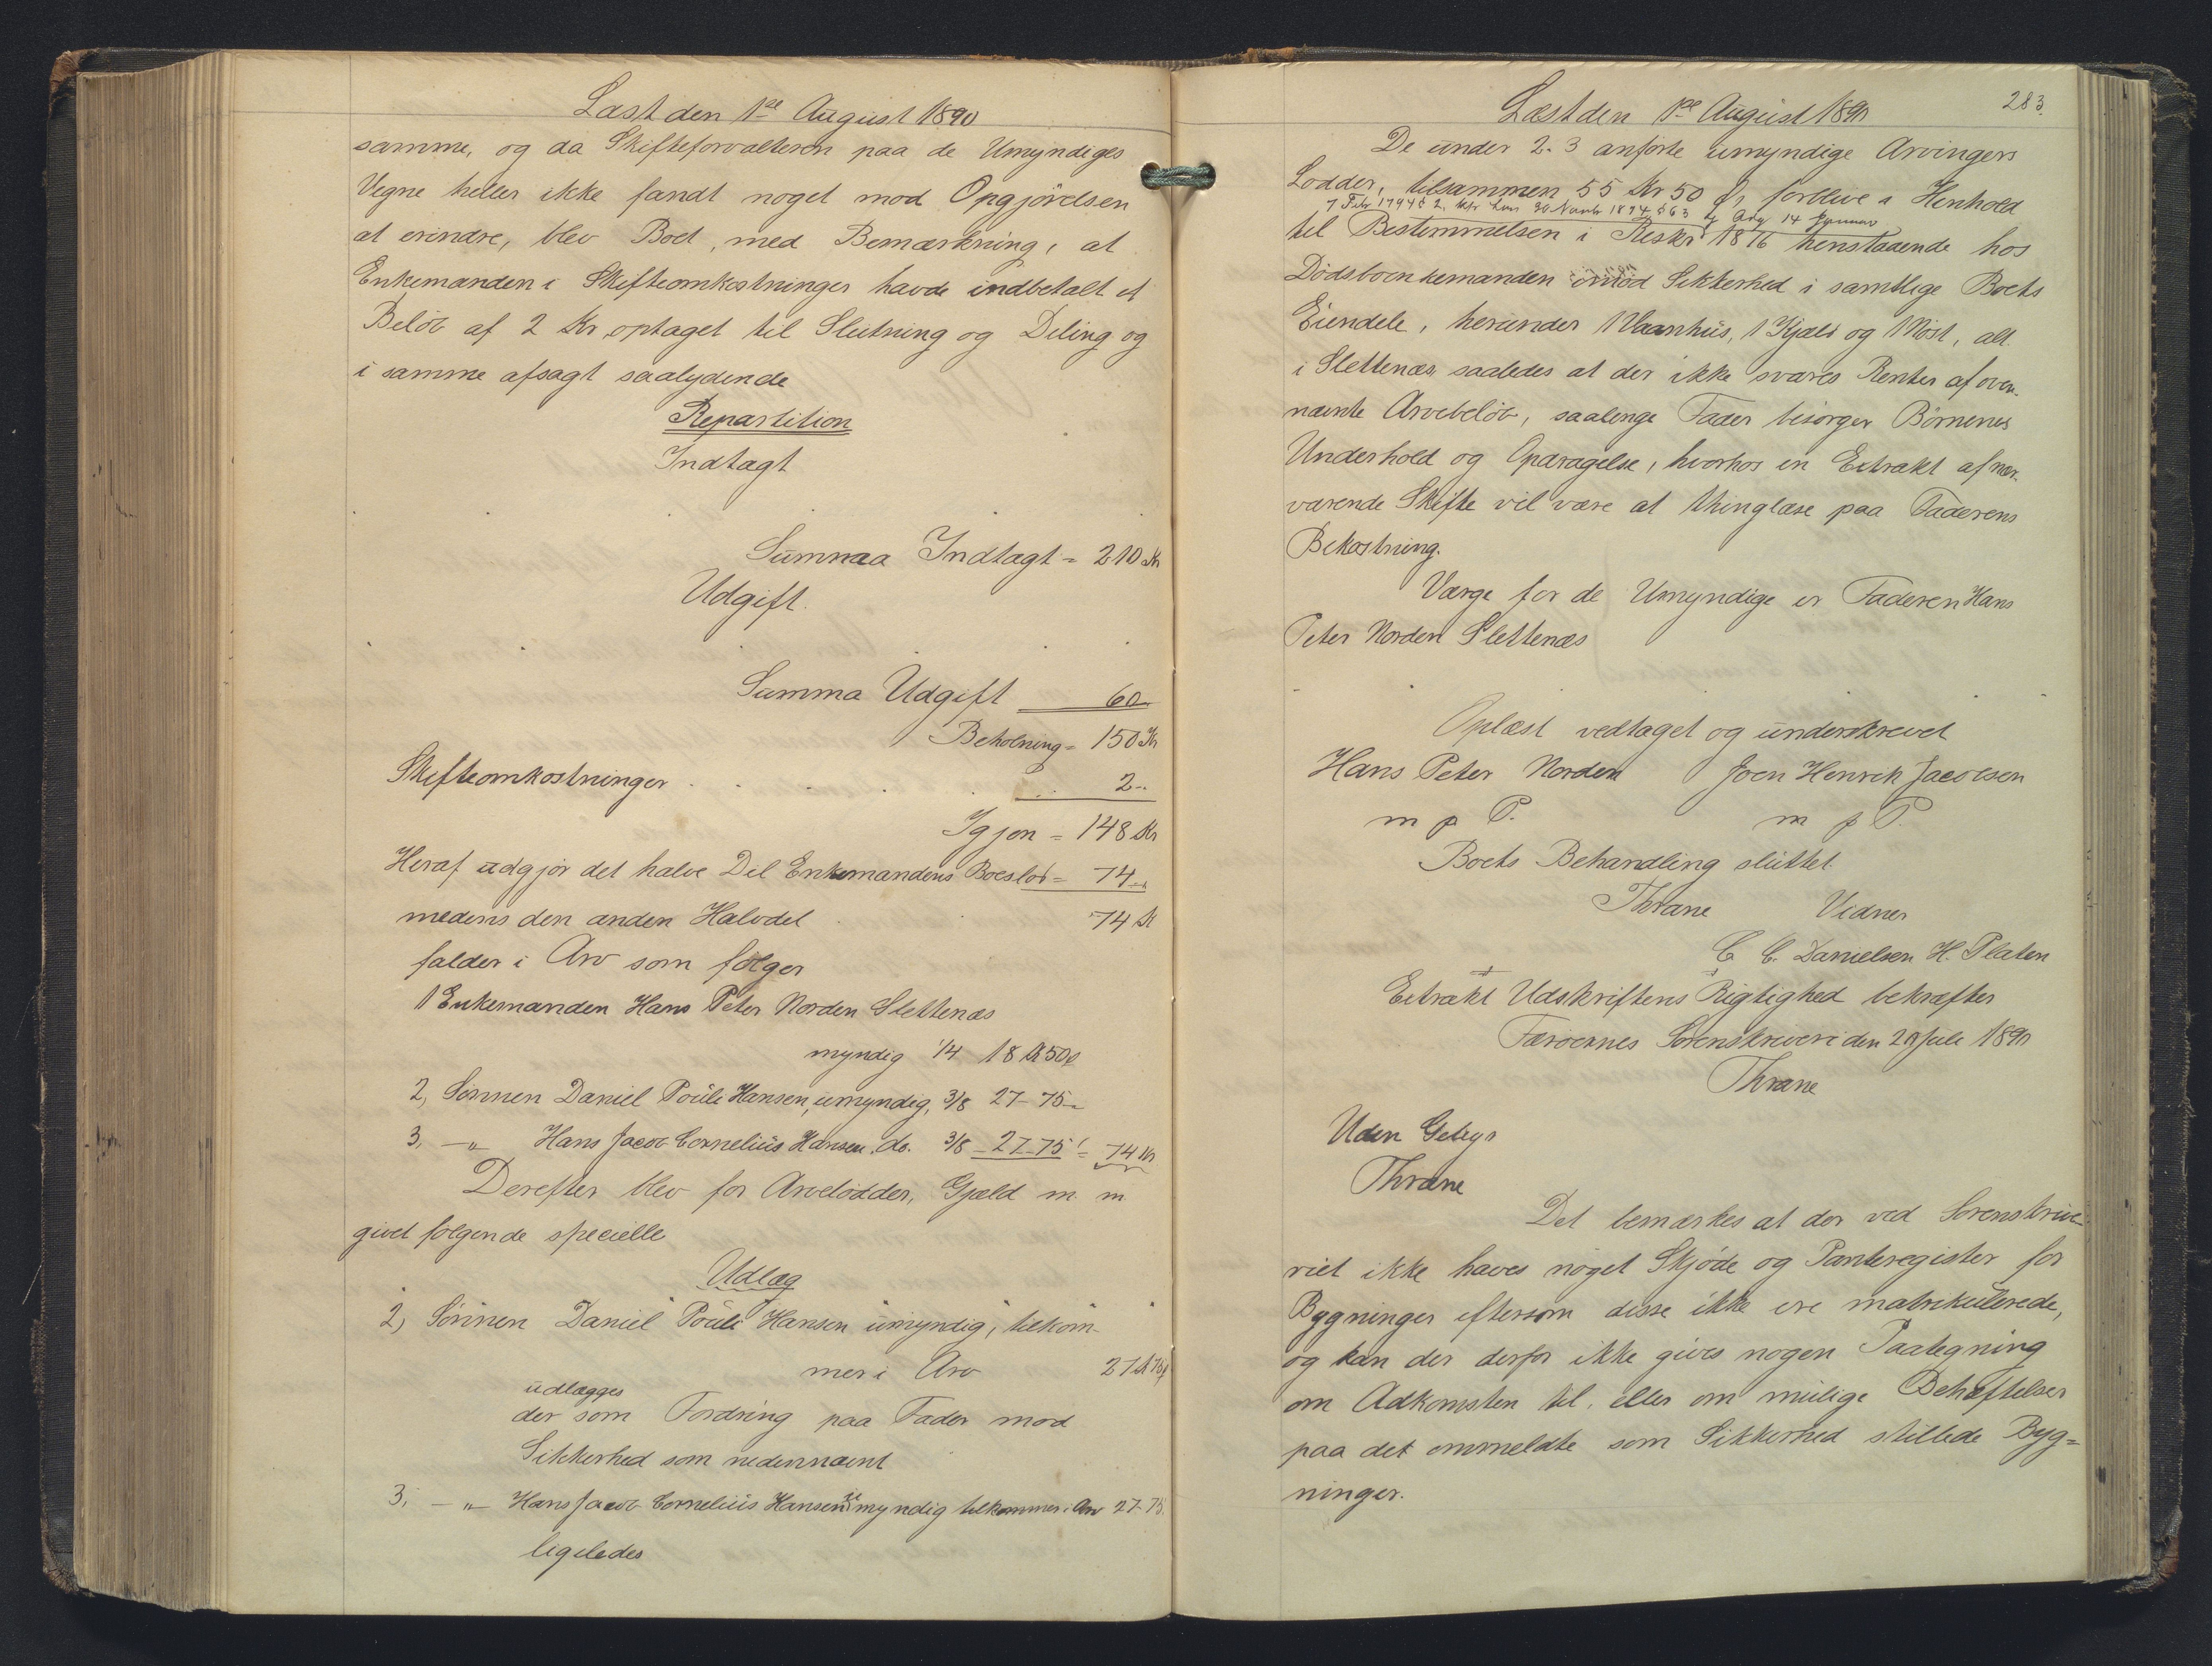 Læst den 1ste August 1890
samme, og da Skifteforvalteren paa de Umyndiges
Vegne heller ikke fandt noget mod Opgjörelsen
at erindre, blev Boet, med Bemærkning, at
Enkemanden i Skifteomkostninger havde indbetalt et
Belöb af 2 Kr, optaget til Slutning og Deling og
i samme afsagt saalydende
Repartition
Indtægt
Summa Indtægt = 210 Kr
Udgift.
Summa Udgift 60 "
Beholdning = 150 Kr
Skifteomkostninger . . . . . 2 "
Igjen = 148 Kr
Heraf udgjör det halve Del Enkemandens Boeslod = 74 "
medens den anden Halvdel 74 Kr
falder i Arv som følger
1 Enkemanden Hans Peter Norden Slettenæs
myndig 1/4 18 Kr 50 ø
2, Sönnen Daniel Pouli Hansen, umyndig, 3/8 27-75 "
3, — " Hans Jacob Cornelius Hansen. do. 3/8 - 27-75 = 74 Kr
Derefter blev for Arvelodder, Gjæld m. m
givet følgende specielle
Udlæg
2) Sönnen Daniel Pouli Hansen umyndig, tilkom-
mer i Arv 27 Kr 75 ø
udlægges
der som Fordring paa Fader mod
Sikkerhed som nedennævnt
3, — " — Hans Jacob Cornelius Hansen umyndig tilkommer i Arv 27-75
ligeledes
283.
Læst den 1ste August 1890
De under 2. 3 anførte umyndige Arvingers
Lodder, tilsammen 55 Kr 50 Ø, forblive i Henhold
7 Febr 1794 § 2, Lov 30 Novbr 1874 § 63 og 14 Januar
til Bestemmelsen i Reskr 1816 henstaaende hos
Dödsboenkemanden imod Sikkerhed i samtlige Boets
Eiendele, herunder 1 Vaanhus, 1 Kjæld og 1 Nöst, alt
i Slettenæs, saaledes at der ikke svares Renter af oven-
nævnte Arvebelöb, saalenge Fader besörger Börnenes
Underhold og Opdragelse, hvorhos en Extrakt af nær-
værende Skifte vil være at thinglæse paa Faderens
Bekostning.
Værge for de Umyndige er Faderen Hans
Peter Norden Slettenæs
Oplæst vedtaget og underskrevet
Hans Peter Norden Joen Henrik Jacobsen
m p P. m p P.
Boets Behandling sluttet
Thrane Vidner
C. C. Danielsen H. Platen
Extrakt Udskriftens Rigtighed bekræfter
Færøernes Sorenskriveri den 20 Juli 1890
Thrane
Uden Gebyr
Thrane
Det bemærkes at der ved Sorenskrive-
riet ikke haves noget Skjöde og Panteregister for
Bygninger eftersom disse ikke ere matrikulerede,
og kan der derfor ikke gives nogen Paategning
om Adkomsten til, eller om mulige Behæftelser
paa det ommeldte som Sikkerhed stillede Byg=
ninger.